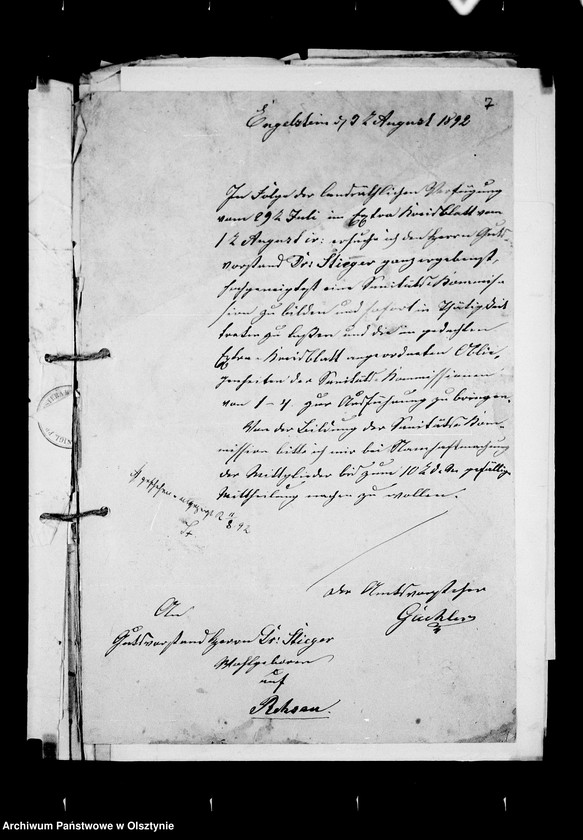 7
Engelstein d, 3t August 1892
In Folge der landräthlichen Verfügung
vom 29t Juli im Extra Kreisblatt vom
1t August cr: ersuche ich den Herrn Guts-
vorstand Dr: Stieger ganz ergebenst,
hochgeneigtest eine Sanitäts-Kommis-
sion zu bilden und sofort in Thätigkeit
treten zu lassen und die im gedachten
Extra-Kreisblatt angeordneten Oblie-
genheiten der Sanitäts-Kommissionen
von 1-4. zur Ausführung zu bringen.
Von der Bildung der Sanitäts-Kom-
mission bitte ich mir bei Namhaftmachung
der Mitglieder bis zum 10t d. Mts. gefällige
Mittheilung machen zu wollen.
geschehen
8. 92
St
Der Amtsvorsteher
Gächler
An
Gutsvorstand Herrn Dr: Stieger
Wohlgeboren
auf
Rehsau.
Archiwum Państwowe w Olsztynie